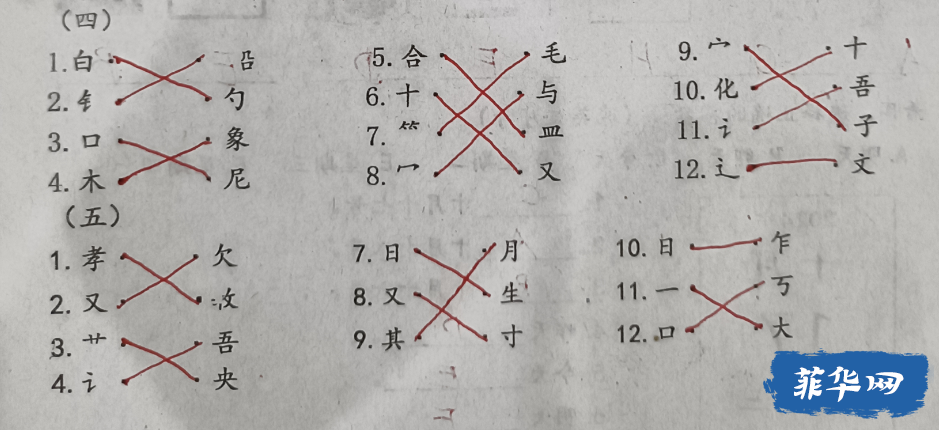 （四）
1.白 吕
2.钅 勺
3.口 象
4.木 尼
5.合 毛
6.十 与
7.⺮ 皿
8.冖 又
9.宀 十
10.化 吾
11.讠 子
12.辶 文
（五）
1.孝 欠
2.又 攵
3.艹 吾
4.讠 央
7.日 月
8.又 生
9.其 寸
10.日 乍
11.一 丂
12.口 大
菲华网